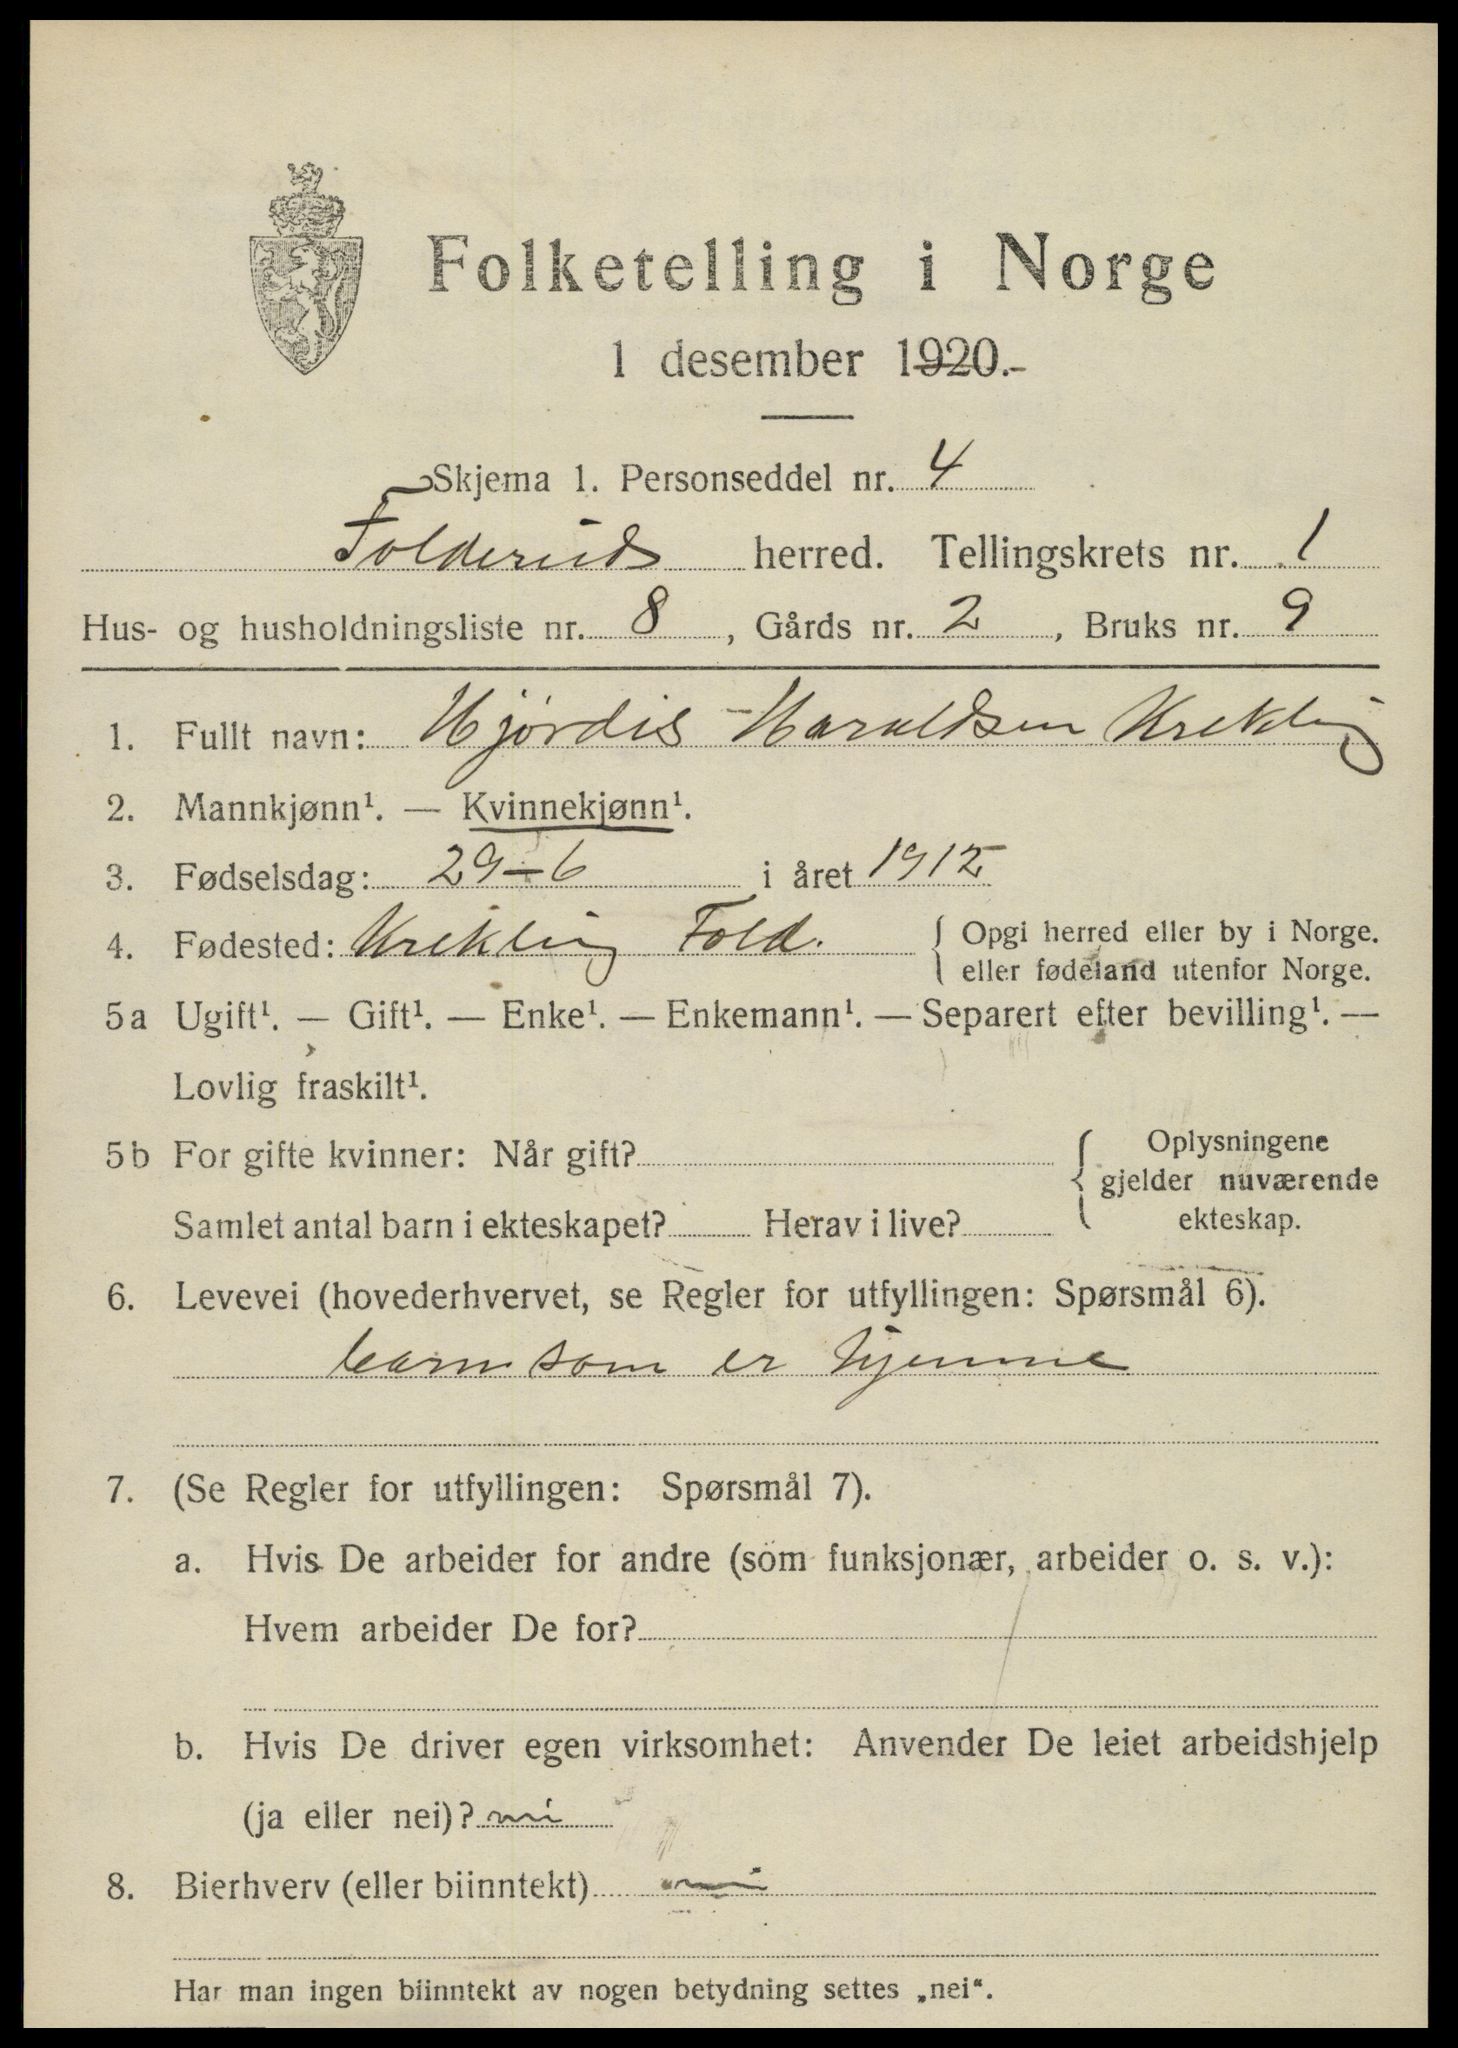 Folketelling i Norge
1 desember 1920.
Skjema 1. Personseddel nr. 4
Foldereids herred. Tellingskrets nr. 1
Hus- og husholdningsliste nr. 8, Gårds nr. 2, Bruks nr. 9
1. Fullt navn: Hjørdis Haraldsen Krekling
2. Mannkjønn¹. — Kvinnekjønn¹.
3. Fødselsdag: 29–6 i året 1912
4. Fødested: Krekling Fold. { Opgi herred eller by i Norge.
eller fødeland utenfor Norge.
5a Ugift¹. — Gift¹. — Enke¹. — Enkemann¹. — Separert efter bevilling¹. —
Lovlig fraskilt¹.
5b For gifte kvinner: Når gift? { Oplysningene
gjelder nuværende
Samlet antal barn i ekteskapet? Herav i live? ekteskap.
6. Levevei (hovederhvervet, se Regler for utfyllingen: Spørsmål 6).
barn som er hjemme
7. (Se Regler for utfyllingen: Spørsmål 7).
a. Hvis De arbeider for andre (som funksjonær, arbeider o. s. v.):
Hvem arbeider De for?
b. Hvis De driver egen virksomhet: Anvender De leiet arbeidshjelp
(ja eller nei)? nei
8. Bierhverv (eller biinntekt) nei
Har man ingen biinntekt av nogen betydning settes „nei“.